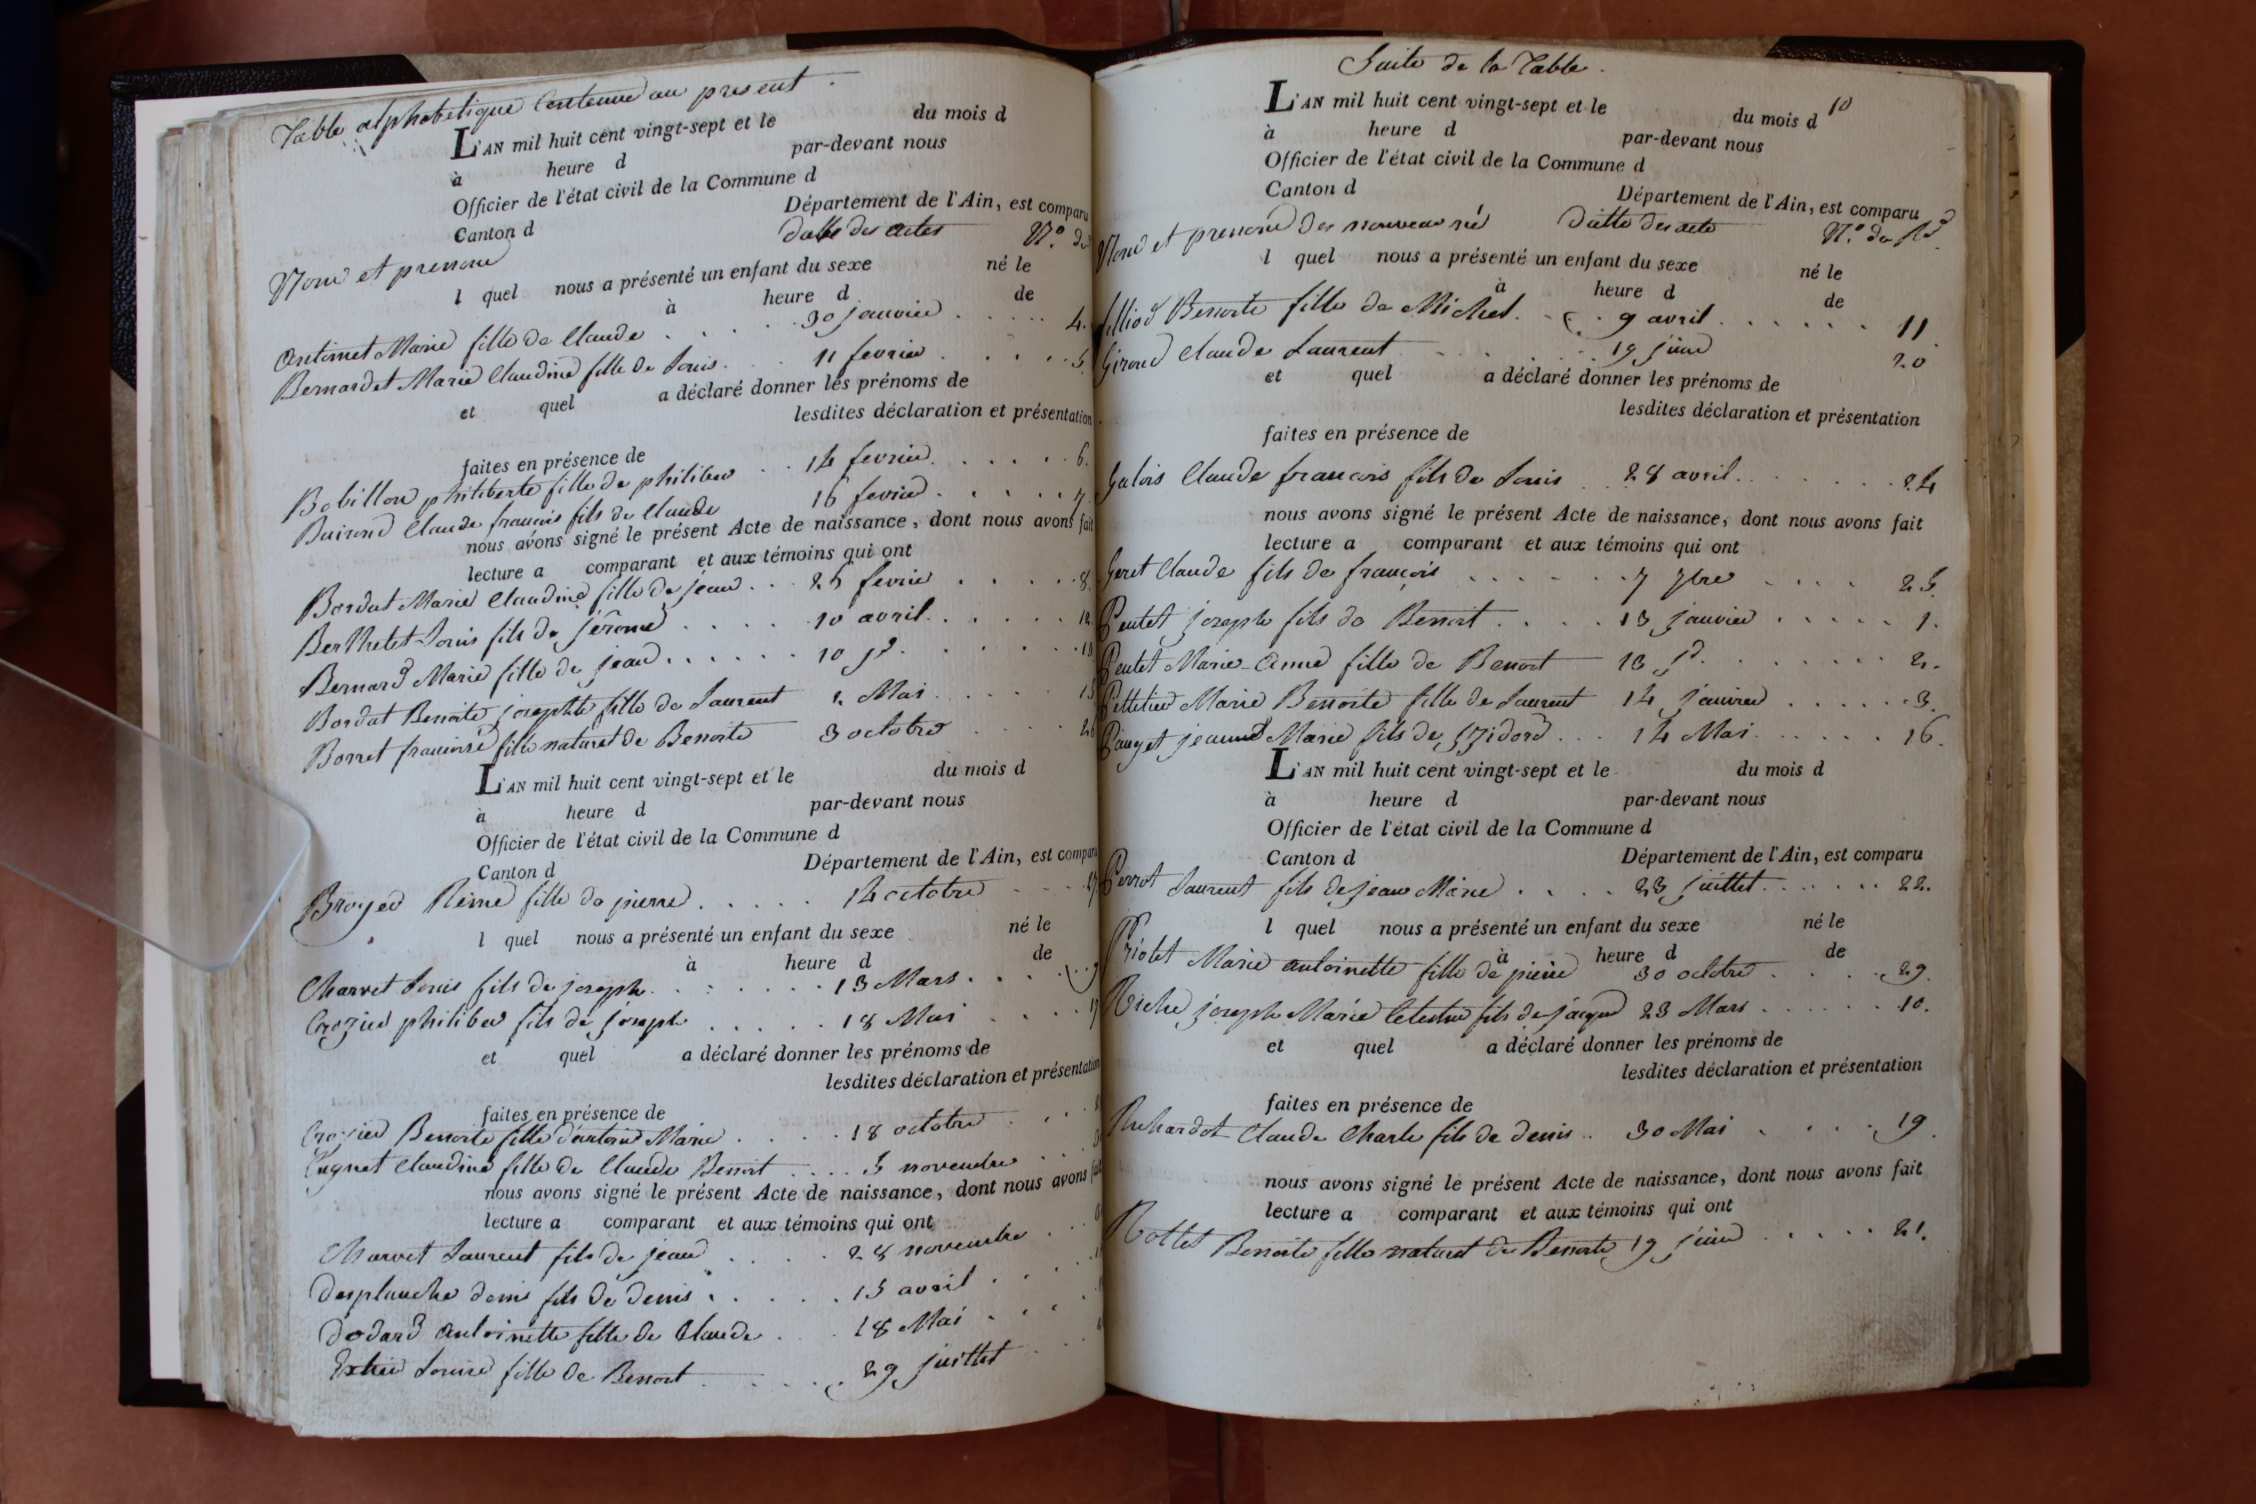 Table alphabetique Contenue au present
L'AN mil huit cent vingt-sept et le du mois d
à heure d par-devant nous
Officier de l'état civil de la Commune d
Canton d Département de l'Ain, est comparu
Nom et prenom datte des actes N.o de
l quel nous a présenté un enfant du sexe né le
à heure d de
Antimet Marie fille de Claude 30 janvier 4.
Bernardet Marie Claudine fille de Louis 11 fevrier 5.
et quel a déclaré donner les prénoms de
lesdites déclaration et présentation
faites en présence de
Bobillon philiberte fille de philiber 14 fevrier 6.
Buirond Claude francois fils de Claude 16 fevrier 7.
nous avons signé le présent Acte de naissance, dont nous avons fait
lecture a comparant et aux témoins qui ont
Bordat Marie Claudine fille de jean 25 fevrier 8.
Berthelet Louis fils de jérome 10 avril 12.
Bernard Marie fille de jean 10 jd. 13
Bordat Benoite josephte fille de Laurent 2 Mai 15
Borret francoise fille naturel de Benoite 3 octobre 26
L'AN mil huit cent vingt-sept et le du mois d
à heure d par-devant nous
Officier de l'état civil de la Commune d
Canton d Département de l'Ain, est comparu
Broyer Reine fille de pierre 14 octobre 27
l quel nous a présenté un enfant du sexe né le
à heure d de
Charvet Louis fils de joseph 13 Mars 9
Crozier philiber fils de joseph 18 Mai 17
et quel a déclaré donner les prénoms de
lesdites déclaration et présentation
faites en présence de
Crozier Benoite fille d'antoine Marie 18 octobre
Cugnet Claudine fille de Claude Benoit 5 novembre
nous avons signé le présent Acte de naissance, dont nous avons fait
lecture a comparant et aux témoins qui ont
Charvet Laurent fils de jean 28 novembre
Desplanche denis fils de denis 15 avril
Dodard Antoinette fille de Claude 18 Mai
Louise fille de Benoit 29 juillet
Suite de la Table
10
L'AN mil huit cent vingt-sept et le du mois d
à heure d par-devant nous
Officier de l'état civil de la Commune d
Canton d Département de l'Ain, est comparu
Nom et prenom des nouveau né datte des acte N.o de
l quel nous a présenté un enfant du sexe né le
à heure d de
filliod Benoite fille de Michel 9 avril 11
Girond Claude Laurent 19 juin 20
et quel a déclaré donner les prénoms de
lesdites déclaration et présentation
faites en présence de
Galois Claude francois fils de Louis 28 avril 24
nous avons signé le présent Acte de naissance, dont nous avons fait
lecture a comparant et aux témoins qui ont
Geret Claude fils de françois 7 7bre 25.
Peutet joseph fils de Benoit 13 janvier 1.
Peutet Marie-Anne fille de Benoit 13 jd. 2.
Pelletier Marie Benoite fille de Laurent 14 janvier 3.
Pauget Marie fils de 14 Mai 16.
L'AN mil huit cent vingt-sept et le du mois d
à heure d par-devant nous
Officier de l'état civil de la Commune d
Canton d Département de l'Ain, est comparu
Perrot Laurent fils de jean Marie 23 juillet 22.
l quel nous a présenté un enfant du sexe né le
à heure d de
Priolet Marie antoinette fille de pierre 30 octobre 29.
Riche joseph Marie Celestin fils de jacque 23 Mars 10.
et quel a déclaré donner les prénoms de
lesdites déclaration et présentation
faites en présence de
Ruhardot Claude Charle fils de denis 30 Mai 19.
nous avons signé le présent Acte de naissance, dont nous avons fait
lecture a comparant et aux témoins qui ont
Rollet Benoite fille naturel de Benoite 19 juin 21.